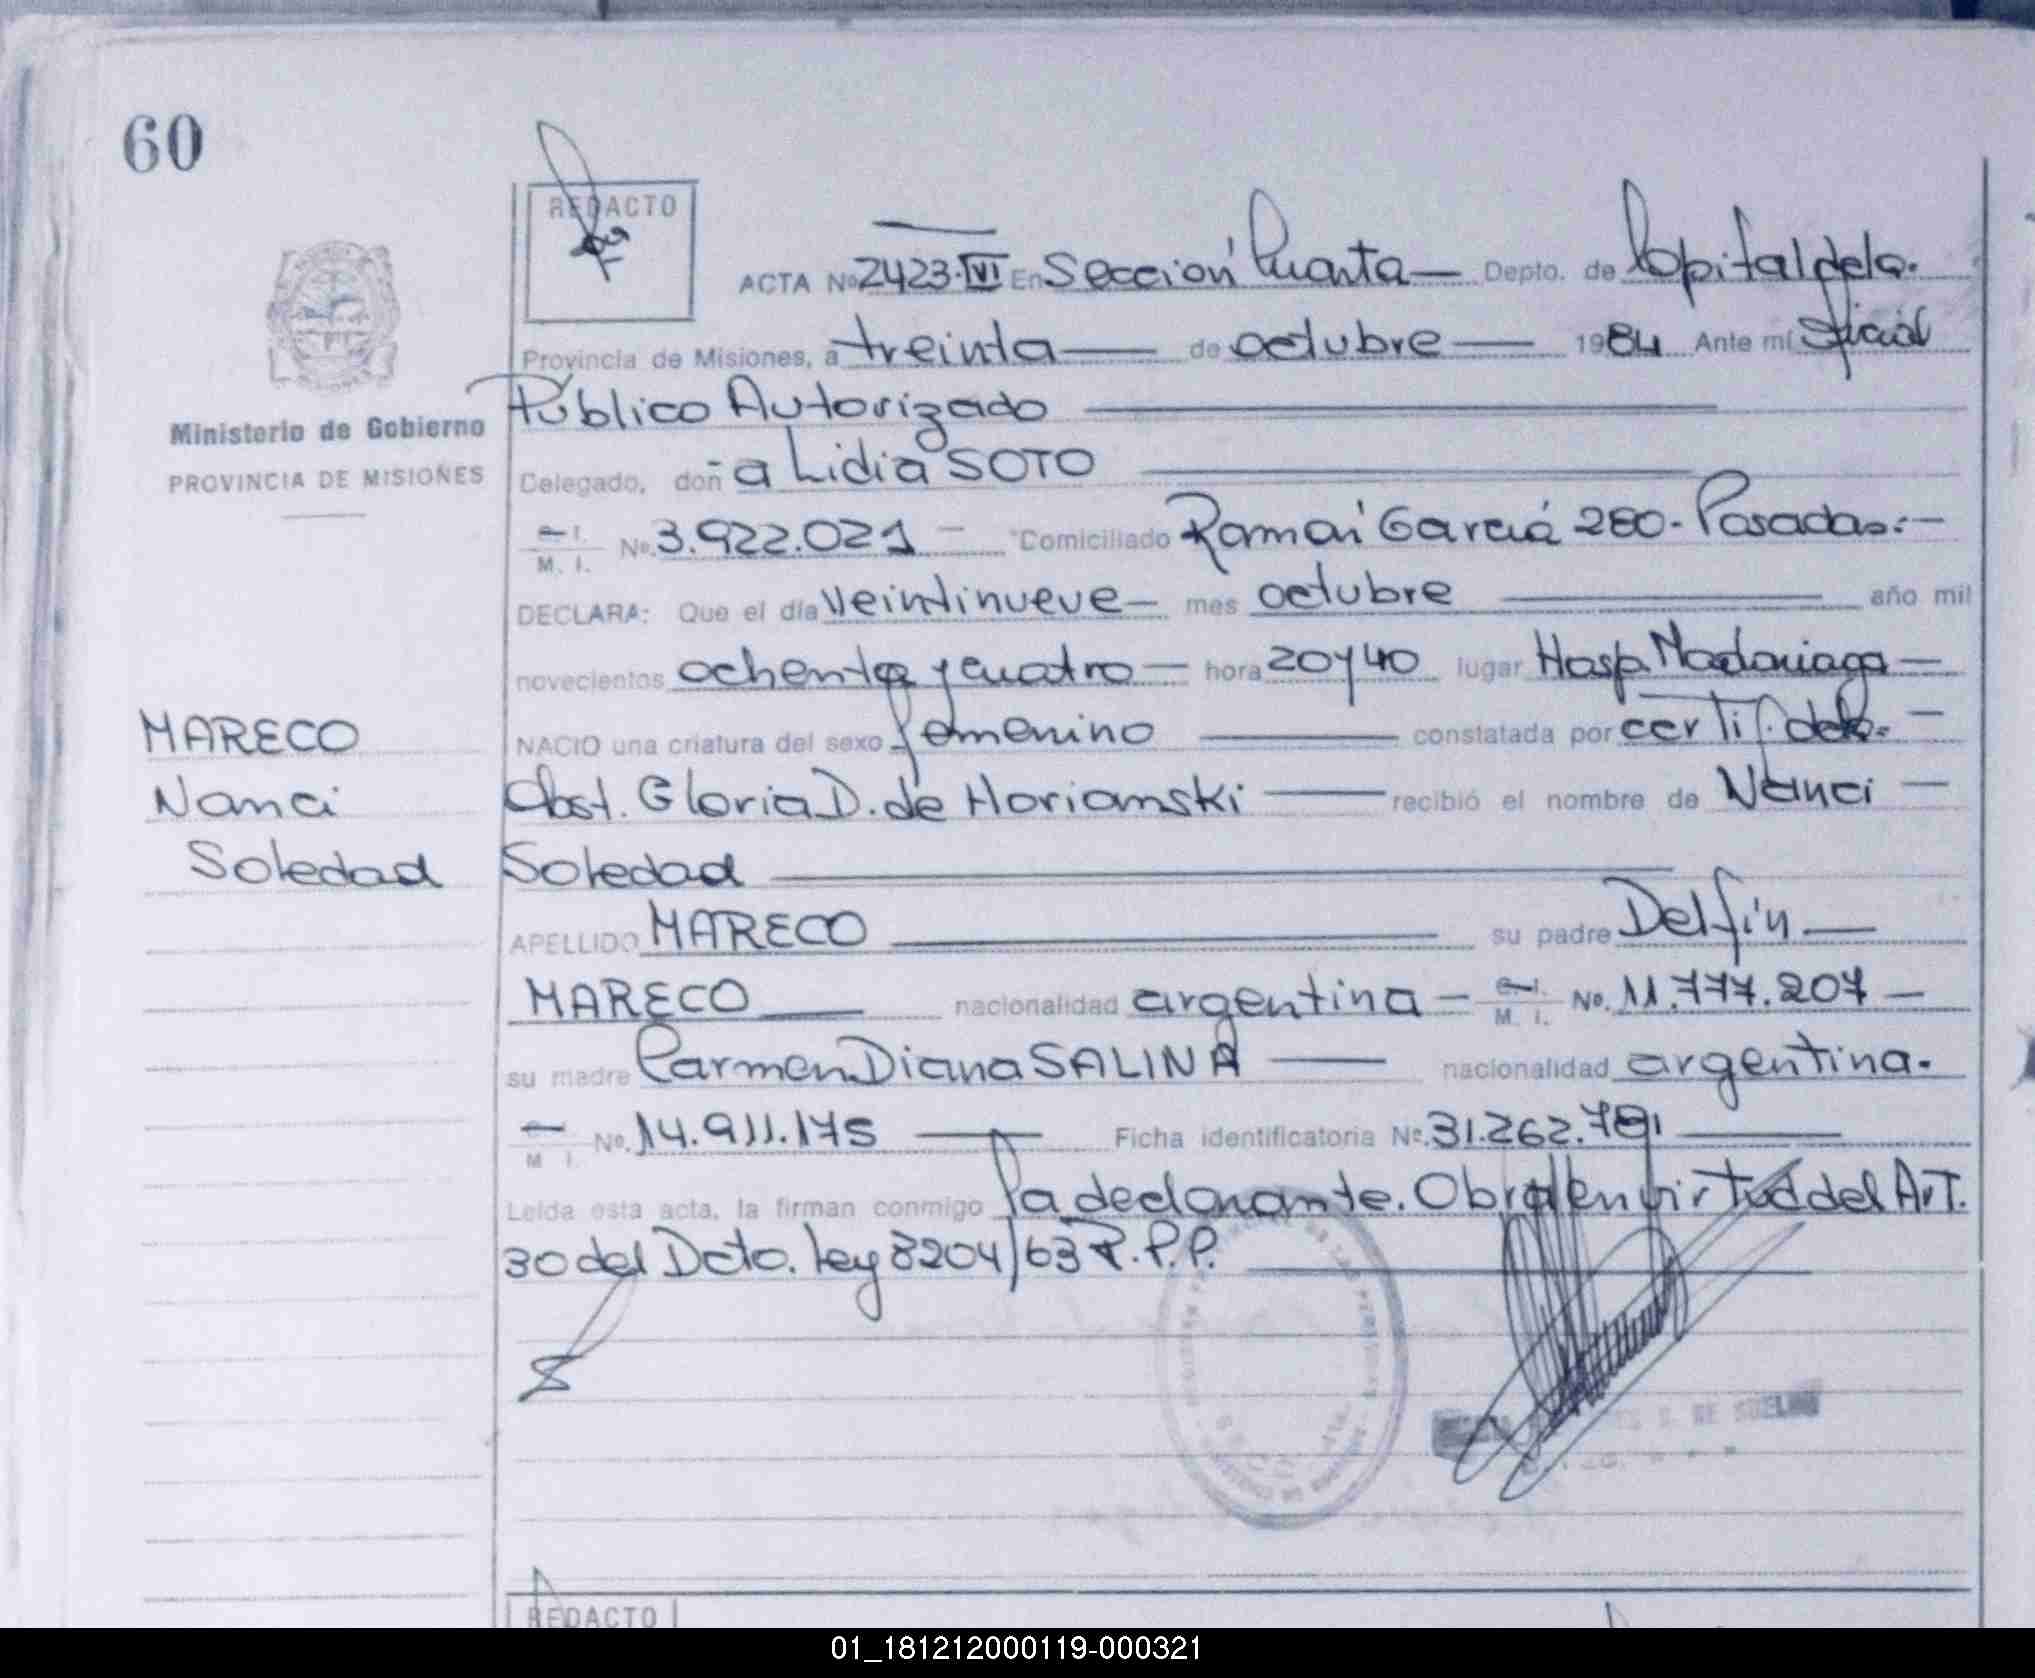 60
REDACTO
ACTA Nº 2423·IVI En Sección Cuarta — Depto. de Capital de la.
Provincia de Misiones, a treinta — de octubre — 1984 Ante mí Oficial
Público Autorizado
Ministerio de Gobierno
PROVINCIA DE MISIONES
Delegado, doña Lidia SOTO
M. I. Nº 3.922.021 — Domiciliado Ramón García 280 - Posadas. —
DECLARA: Que el día veintinueve — mes octubre — año mil
novecientos ochenta y cuatro — hora 20 y 40 lugar Hosp. Madariaga —
NACIO una criatura del sexo femenino — constatada por certif. de la. —
Obst. Gloria D. de Moriamski — recibió el nombre de Nanci —
Soledad
MARECO
Nanci
Soledad
APELLIDO MARECO — su padre Delfín —
MARECO — nacionalidad argentina — M. I. Nº 11.777.207 —
su madre Carmen Diana SALINA — nacionalidad argentina.
M I. Nº 14.911.175 — Ficha identificatoria Nº 31.262.791 —
Leída esta acta, la firman conmigo la declarante. Obra en virtud del Art.
30 del Dcto. Ley 8204/63 P.P.P.
DE SUELDO
REDACTO
01_181212000119-000321